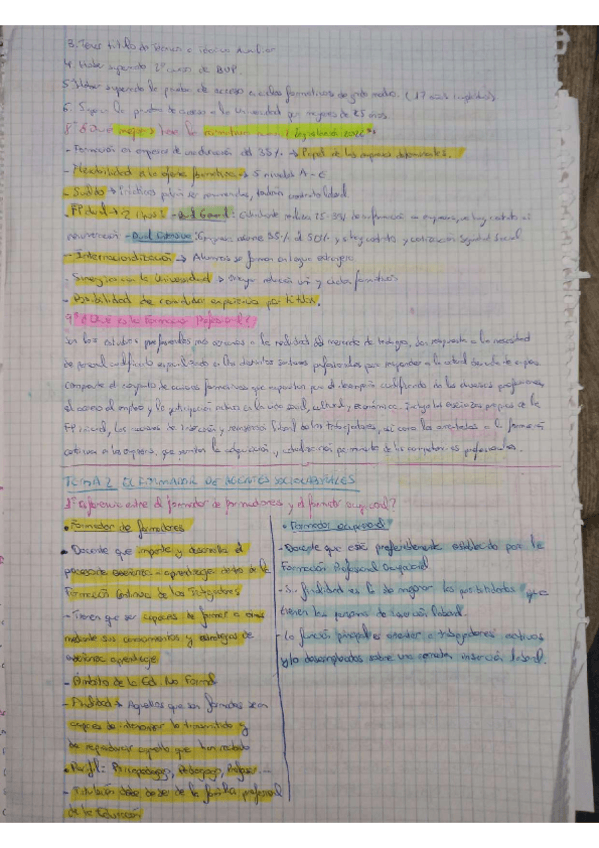 3. Tener título de Técnico o Técnico Auxiliar
4. Haber superado 2º curso de BUP.
5. Haber superado la prueba de acceso a ciclos formativos de grado medio. (17 años cumplidos)
6. Superar la prueba de acceso a la Universidad para mayores de 25 años.
8º ¿Qué mejoras tiene la
- Formación en empresas de una duración del 35% → Papel de las empresas determinantes.
- Flexibilidad a la oferta formativa → 5 niveles A - E
- Sueldo → Prácticas podrán ser remuneradas, tendrán contrato laboral
- FP dual → 2 tipos: - Dual General: Estudiante realiza 25-35% de la formación en empresa, no hay contrato ni
remuneración - Dual Intensiva: Empresas asumen 35% al 50% y hay contrato y cotización Seguridad Social
- Internacionalización → Alumnos se forman en lengua extranjera
- Sinergia con la Universidad → relación uni y ciclos formativos
- Posibilidad de convalidar experiencia por títulos.
9º ¿Qué es la Formación Profesional?
Son los estudios profesionales más cercanos a la realidad del mercado de trabajo, dan respuesta a la necesidad
de personal cualificado especializado en los distintos sectores profesionales para responder a la actual demanda de empleo
comprende el conjunto de acciones formativas que capacitan para el desempeño cualificado de las diversas profesiones,
el acceso al empleo y la participación activa en la vida social, cultural y económica. Incluye las enseñanzas propias de la
FP inicial, las acciones de inserción y reinserción laboral de los trabajadores, así como las orientadas a la formación
continua en las empresas, que permitan la adquisición y actualización permanente de las competencias profesionales.
TEMA 2. EL FORMADOR DE AGENTES SOCIOLABORALES
1º Diferencia entre el formador de formadores y el formador ocupacional?
• Formador de formadores
• Docente que imparte y desarrolla el
proceso de enseñanza-aprendizaje dentro de la
Formación Continua de los Trabajadores.
- Tienen que ser capaces de formar a otros
mediante sus conocimientos y estrategias de
enseñanza aprendizaje
- Ámbito de la Ed. No Formal
- Finalidad → Aquellos que son formados sean
capaces de interiorizar lo transmitido y
de reproducir aquello que han recibido
• Perfil: Psicopedagogo, Pedagogo, Profesor ...
- Titulación debe de ser de la familia profesional
de la Educación
• Formador ocupacional
- Docente que está preferiblemente establecido por la
Formación Profesional Ocupacional
- Su finalidad es la de mejorar las posibilidades que
tienen las personas de inserción laboral.
- La función principal es atender a trabajadores activos
y/o desempleados sobre una correcta inserción laboral.